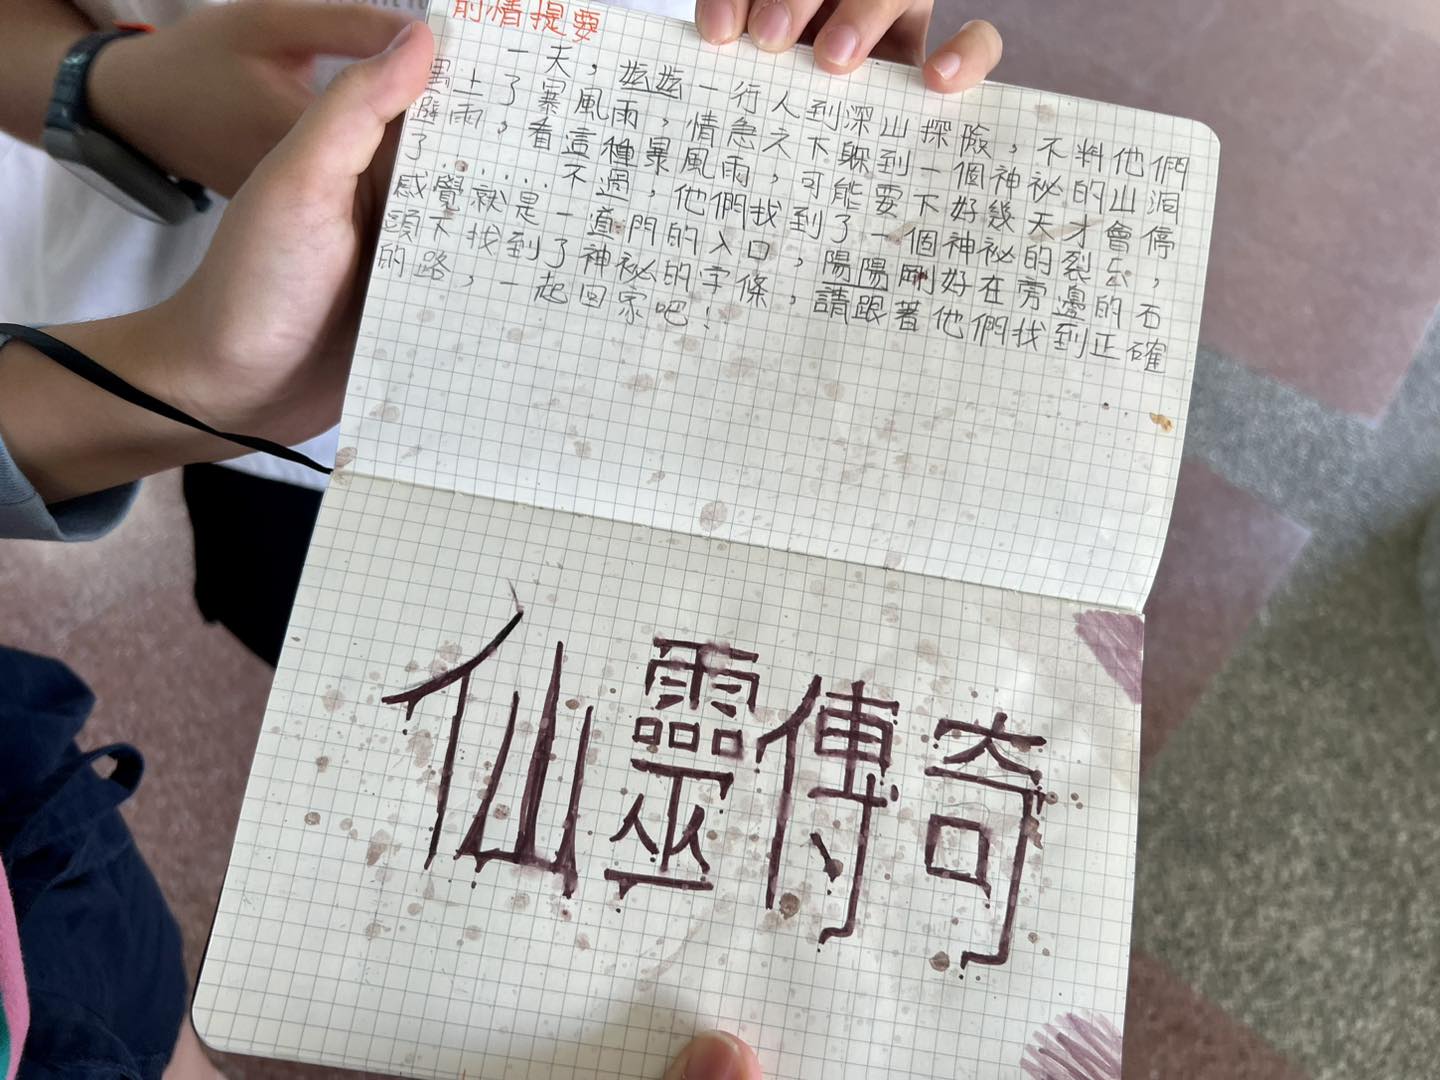 前情提要
一天，茲茲一行人到深山探險，不料他們
遇上了暴風雨，情急之下躲到一個神祕的山洞
避雨，看這種暴風雨，可能要下好幾天才會停
了......不過，他們找到了一個神祕的裂公，
感覺就是一道門的入口，陽陽剛好在旁邊的石
頭下找到了神祕的字條，請跟著他們找到正確
的路，一起回家吧！
仙靈傳奇